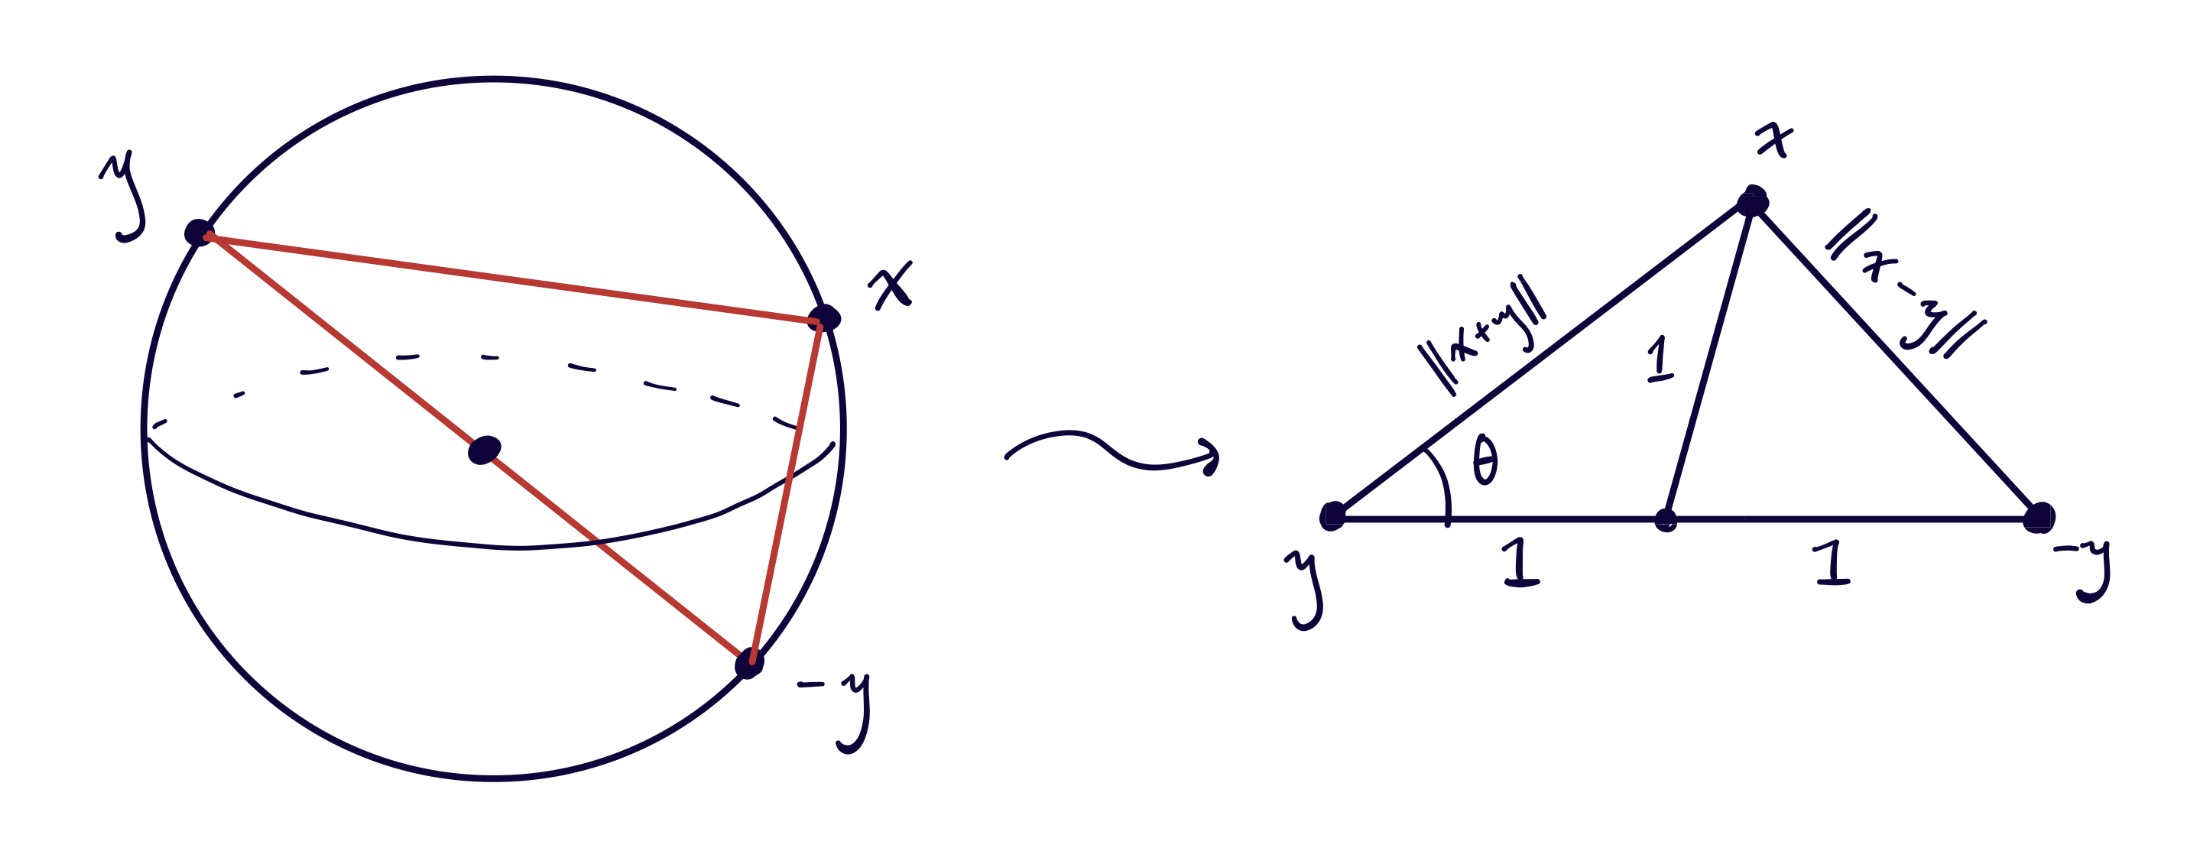 y
x
-y
x
||x+y||
||x-y||
1
θ
y
1
1
-y